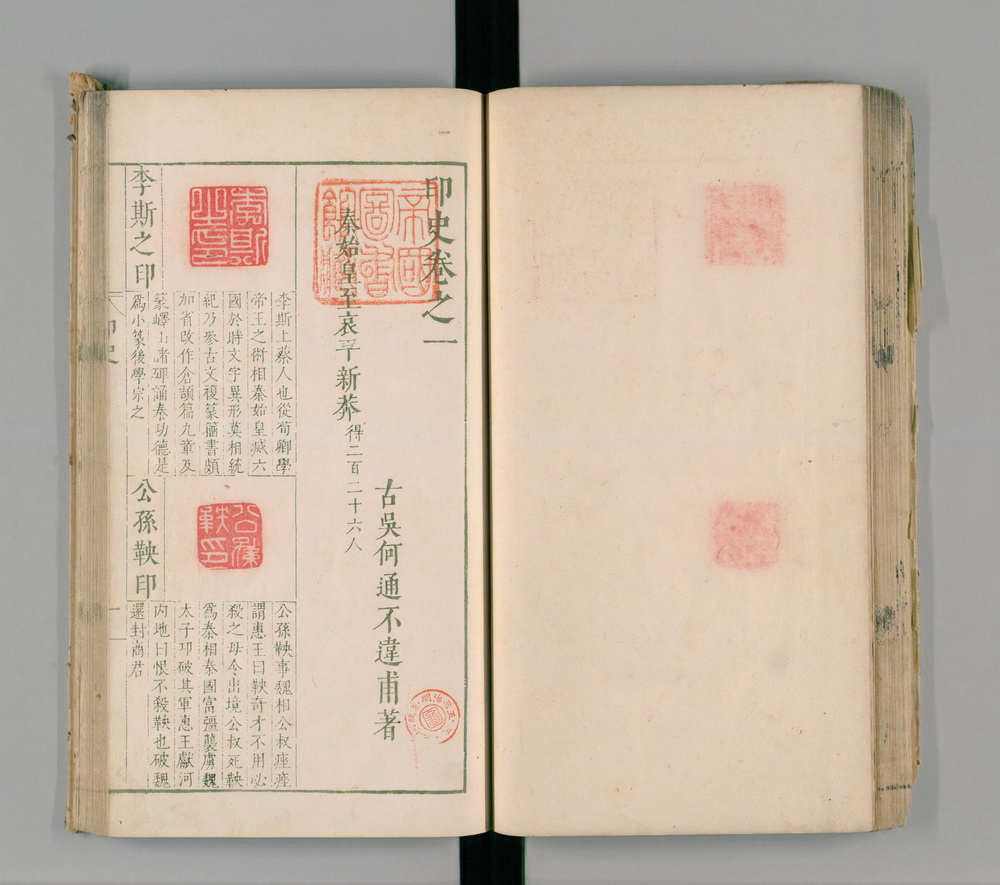 一
印史卷之一
帝國圖書館藏
古吳何通不違甫著
秦始皇至哀平新莽得二百二十六人
李斯之印
李斯之印
李斯上蔡人也從荀卿學
帝王之術相秦始皇滅六
國於時文字異形莫相統
紀乃參古文複篆籀書頗
加省改作倉頡篇九章及
篆嶧山諸碑誦秦功德是
爲小篆後學宗之
公孫鞅印
公孫鞅印
公孫鞅事魏相公叔痤痤
謂惠王曰鞅奇才不用必
殺之毋令出境公叔死鞅
爲秦相秦國富彊襲虜魏
太子卬破其軍惠王獻河
內地曰恨不殺鞅也破魏
還封商君
印史
一